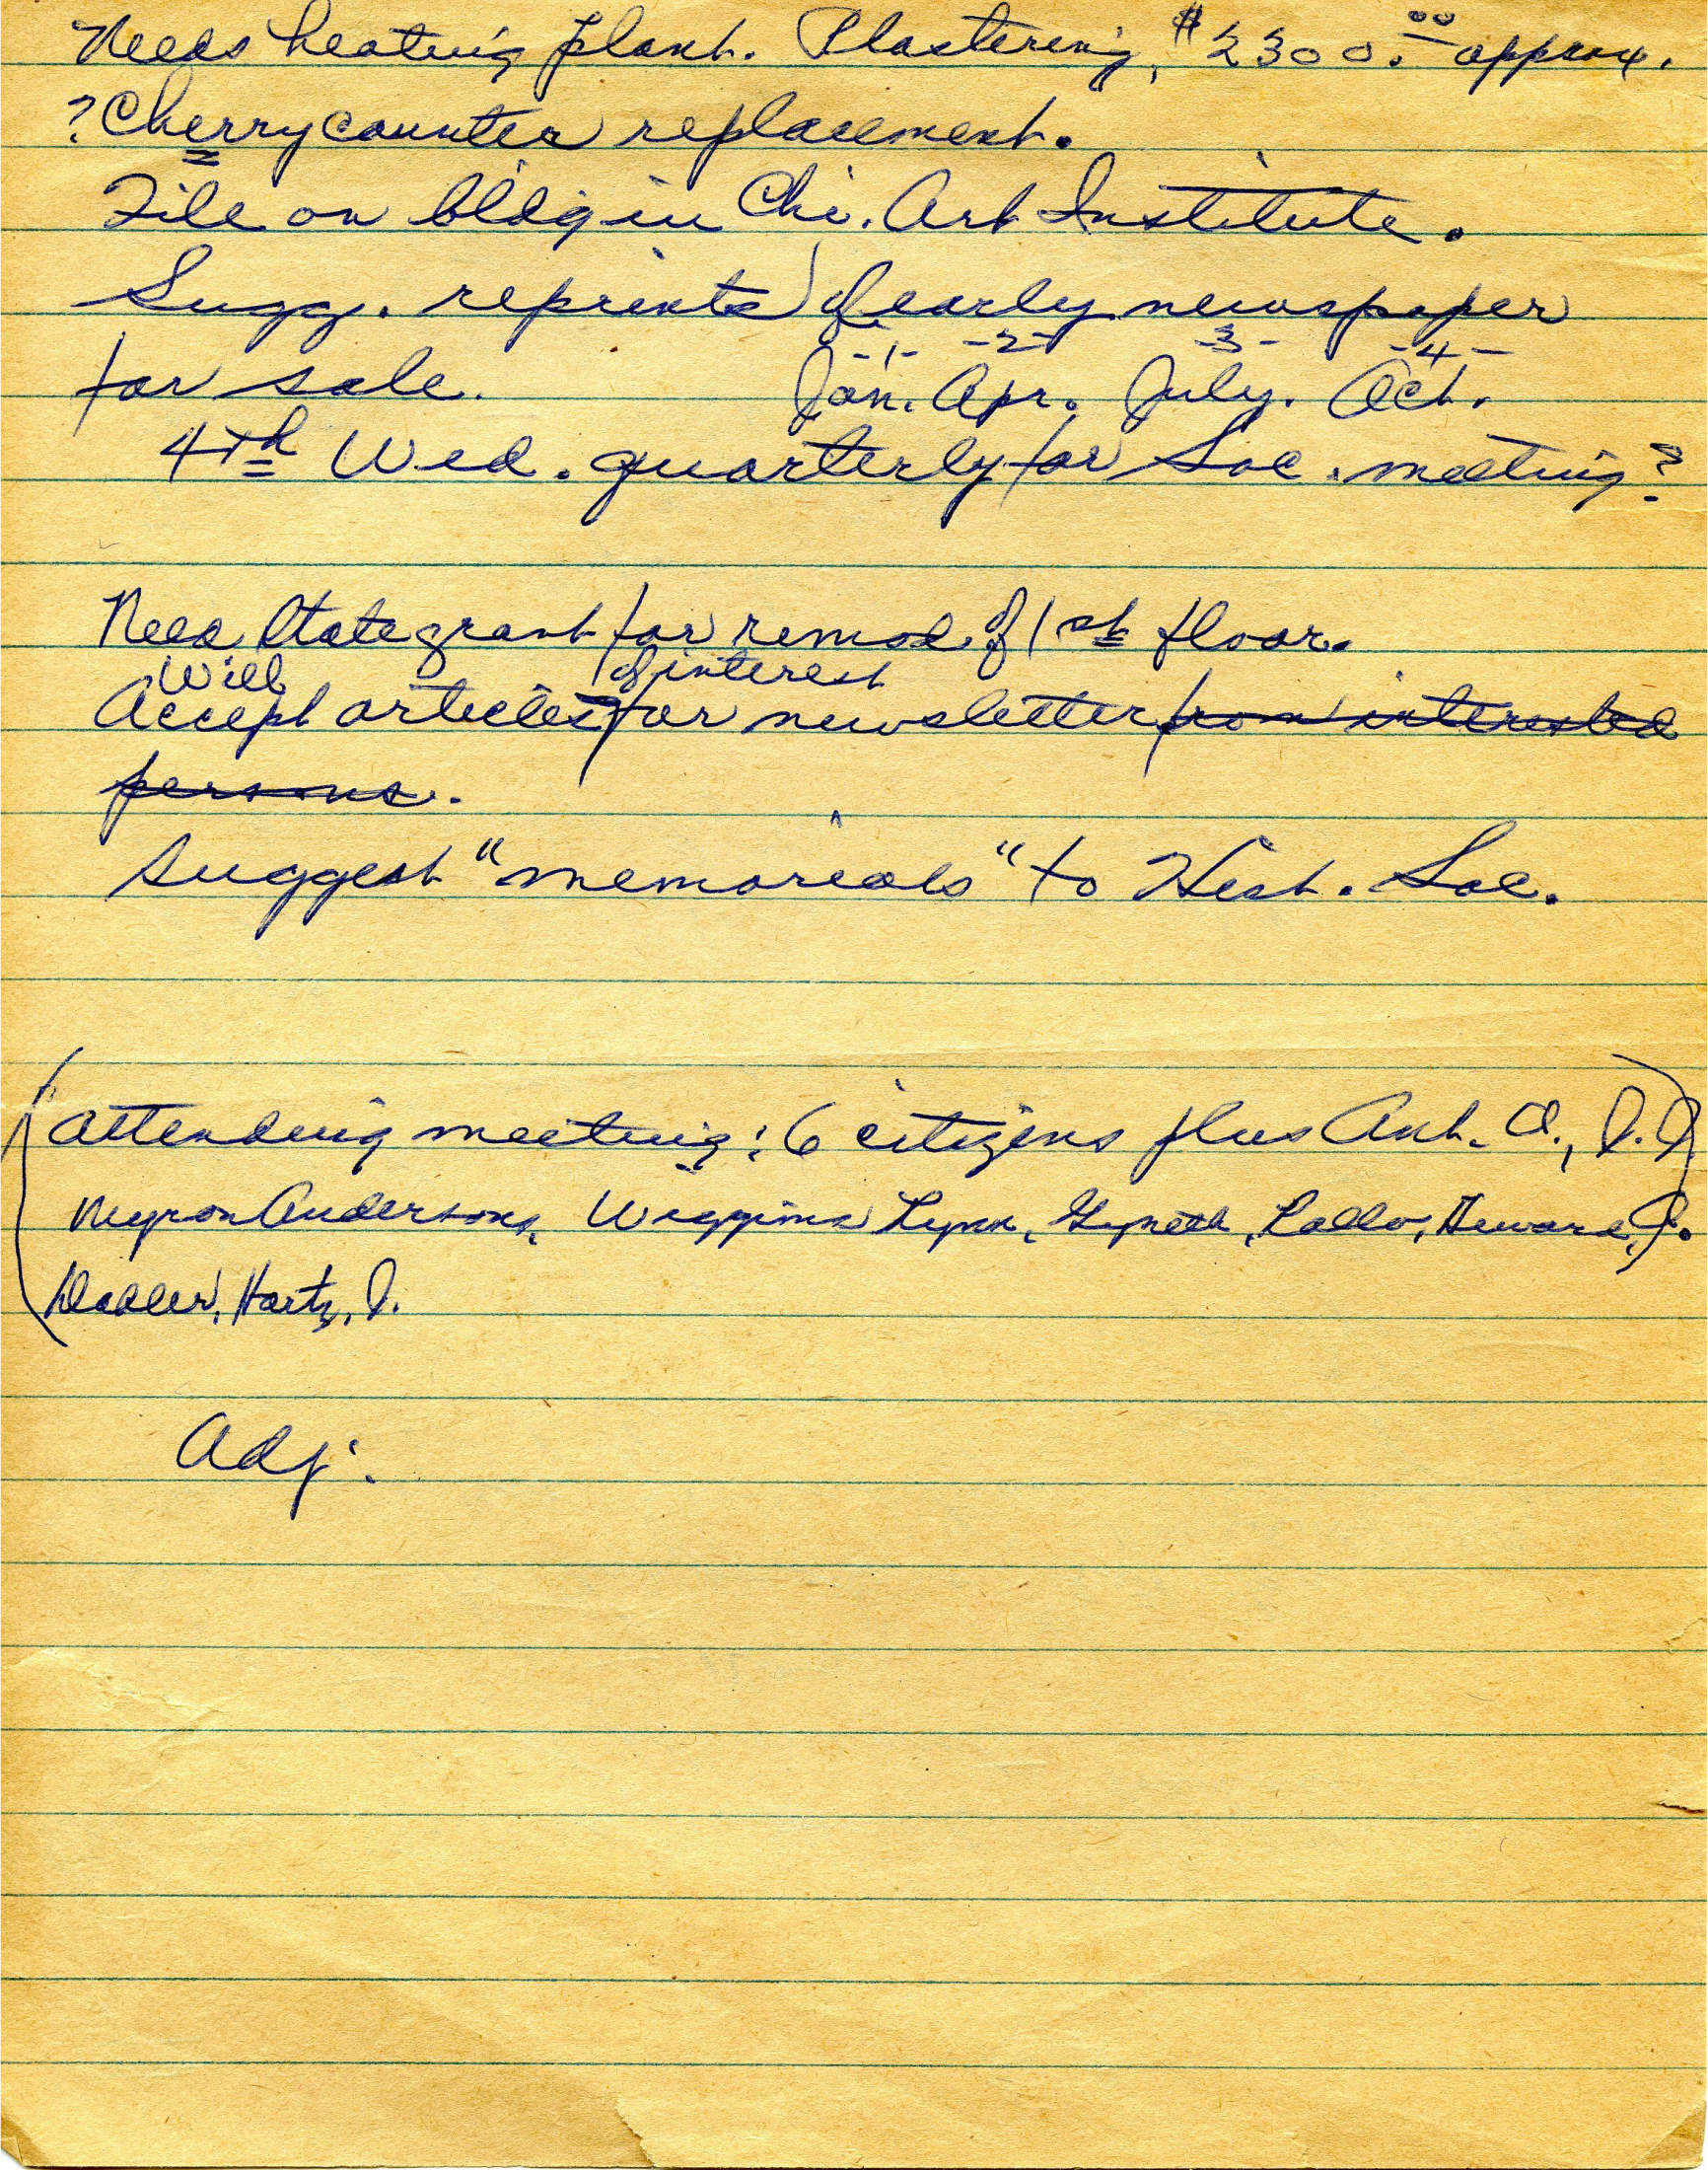 Needs heating plant. Plastering, $2300.00 approx.
? Cherry counter replacement.
File on bldg in Chi. Art Institute.
Sugg. reprints of early newspaper
for sale.
-1- -2- -3- -4-
Jan. Apr. July. Oct.
4th Wed. quarterly for Soc. meeting?
Need State grant for remod. of 1st floor.
Will of interest
Accept articles for newsletter from interested
persons.
Suggest "memorials" to Hist. Soc.
(Attending meeting: 6 citizens plus
Myron Andersons, Wiggins Lynn, Gyneth, Howard, J.
Hartz, J.
Adj.